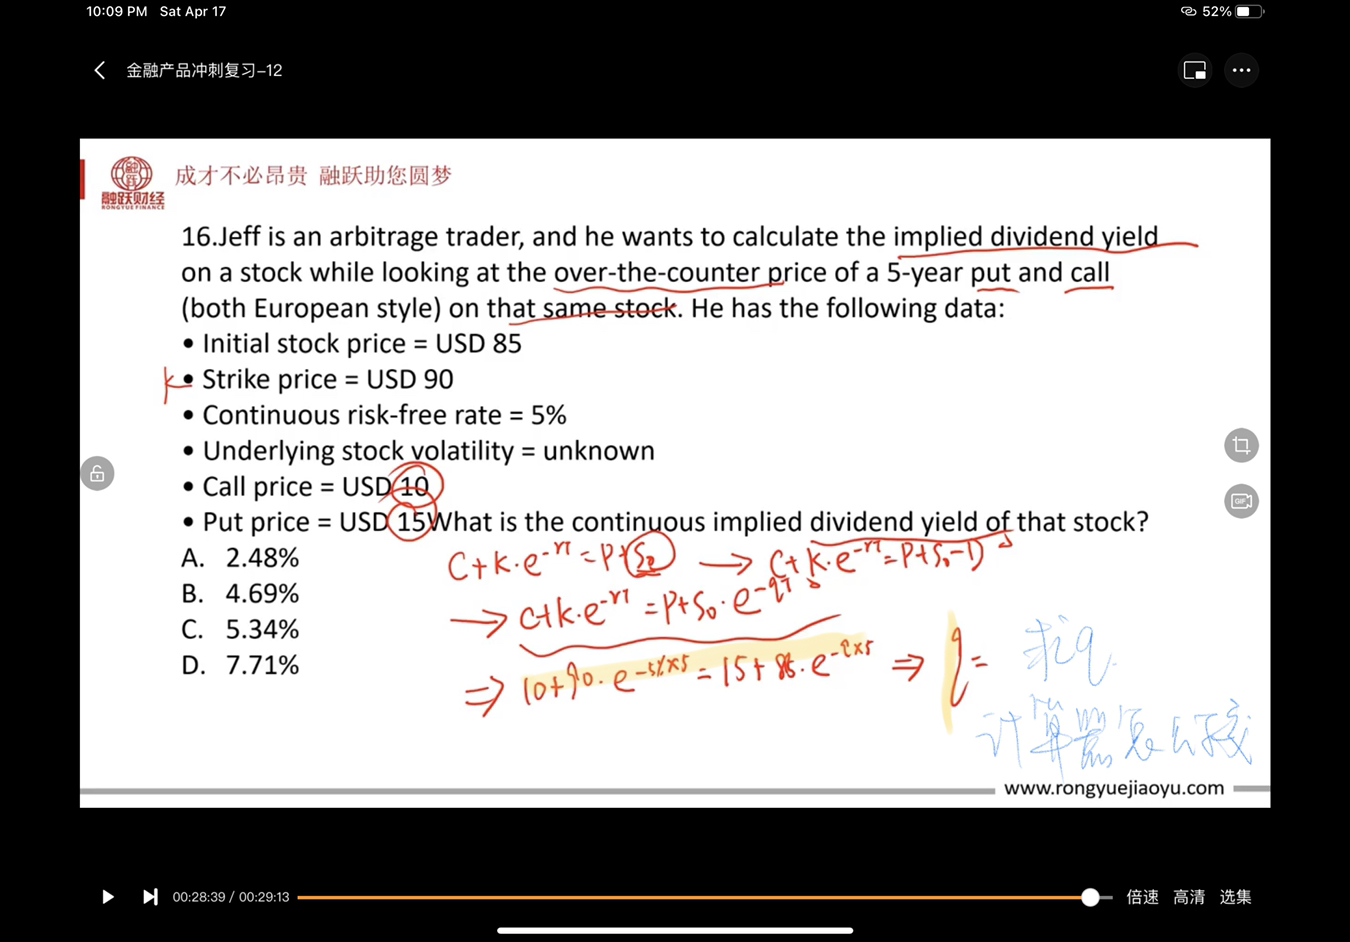 10:09 PM Sat Apr 17
52%
金融产品冲刺复习-12
融跃财经
RONGYUE FINANCE
成才不必昂贵 融跃助您圆梦
16.Jeff is an arbitrage trader, and he wants to calculate the implied dividend yield
on a stock while looking at the over-the-counter price of a 5-year put and call
(both European style) on that same stock. He has the following data:
• Initial stock price = USD 85
K
• Strike price = USD 90
• Continuous risk-free rate = 5%
• Underlying stock volatility = unknown
• Call price = USD 10
• Put price = USD 15What is the continuous implied dividend yield of that stock?
A. 2.48%
B. 4.69%
C. 5.34%
D. 7.71%
C+K·e^-rT=P+S₀ → C+K·e^-rT=P+S₀-D
→ C+K·e^-rT=P+S₀·e^-qT
⇒ 10+90·e^-5%×5=15+85·e^-q×5 ⇒ q=
求q
计算器怎么按
www.rongyuejiaoyu.com
GIF
00:28:39 / 00:29:13
倍速 高清 选集